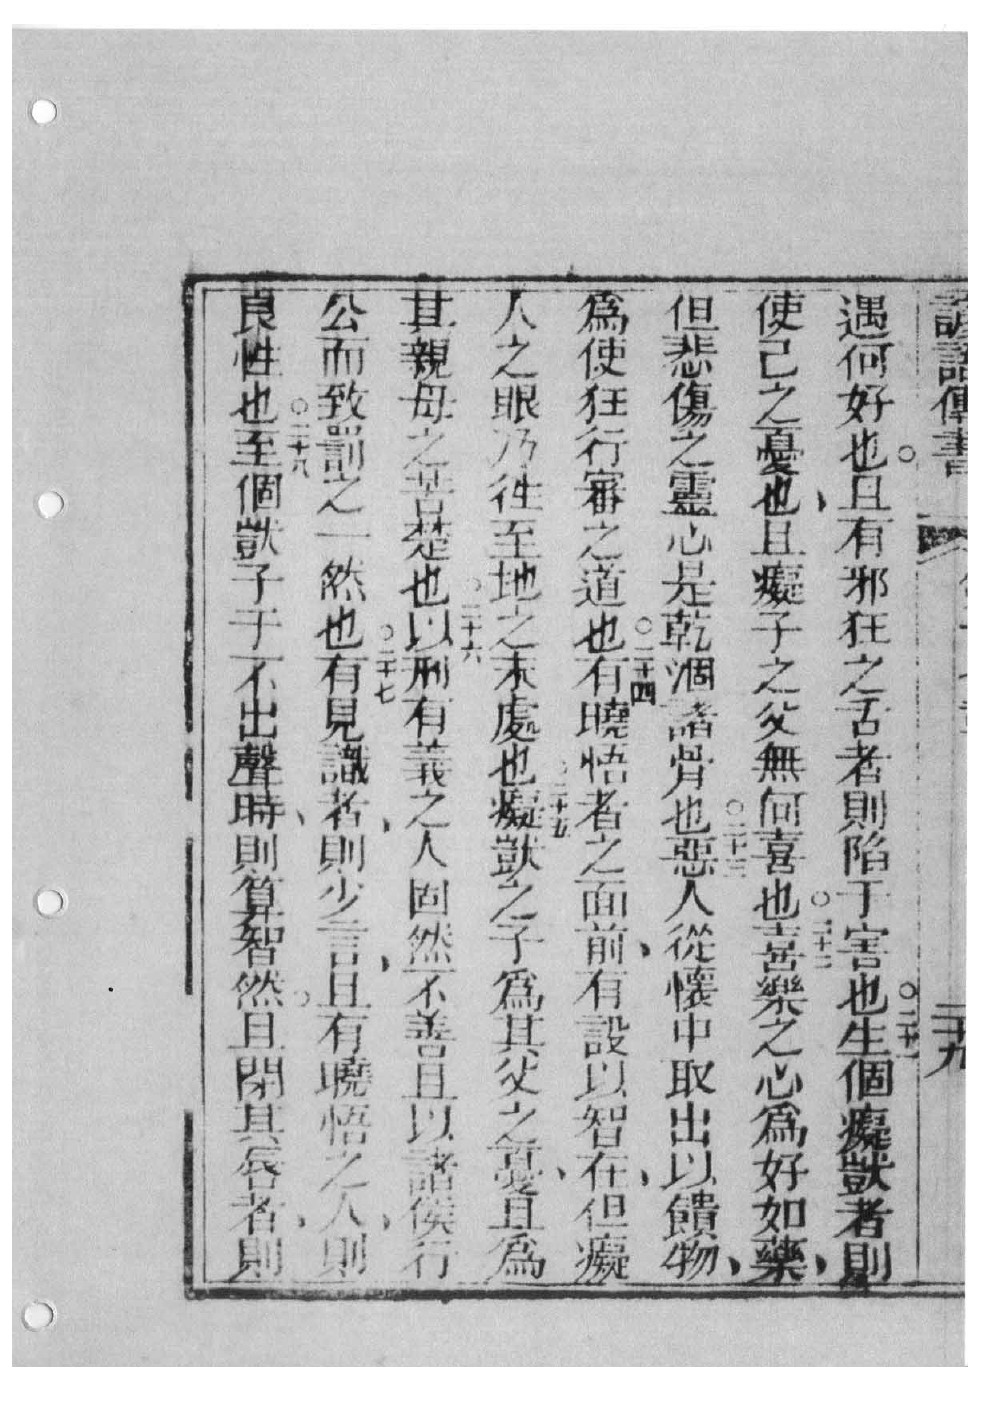 諺語傳書 二十九
遇何好也○且有邪狂之舌者則陷于害也○二十一生個癡獃者則
使己之憂也、且癡子之父無何喜也○二十二喜樂之心為好如藥、
但悲傷之靈心是乾涸諸骨也○二十三惡人從懷中取出以饋物、
為使狂行審之道也○二十四有曉悟者之面前、有設以智在、但癡
人之眼乃徃至地之末處也○二十五癡獃之子為其父之憂、且為
其親母之苦楚也○二十六以刑有義之人固然不善且以諸侯行
公而致罰之一然也○二十七有見識者、則少言、且有曉悟之人、則
良性也○二十八至個獃子于不出聲時、則算智然○且閉其唇者、則